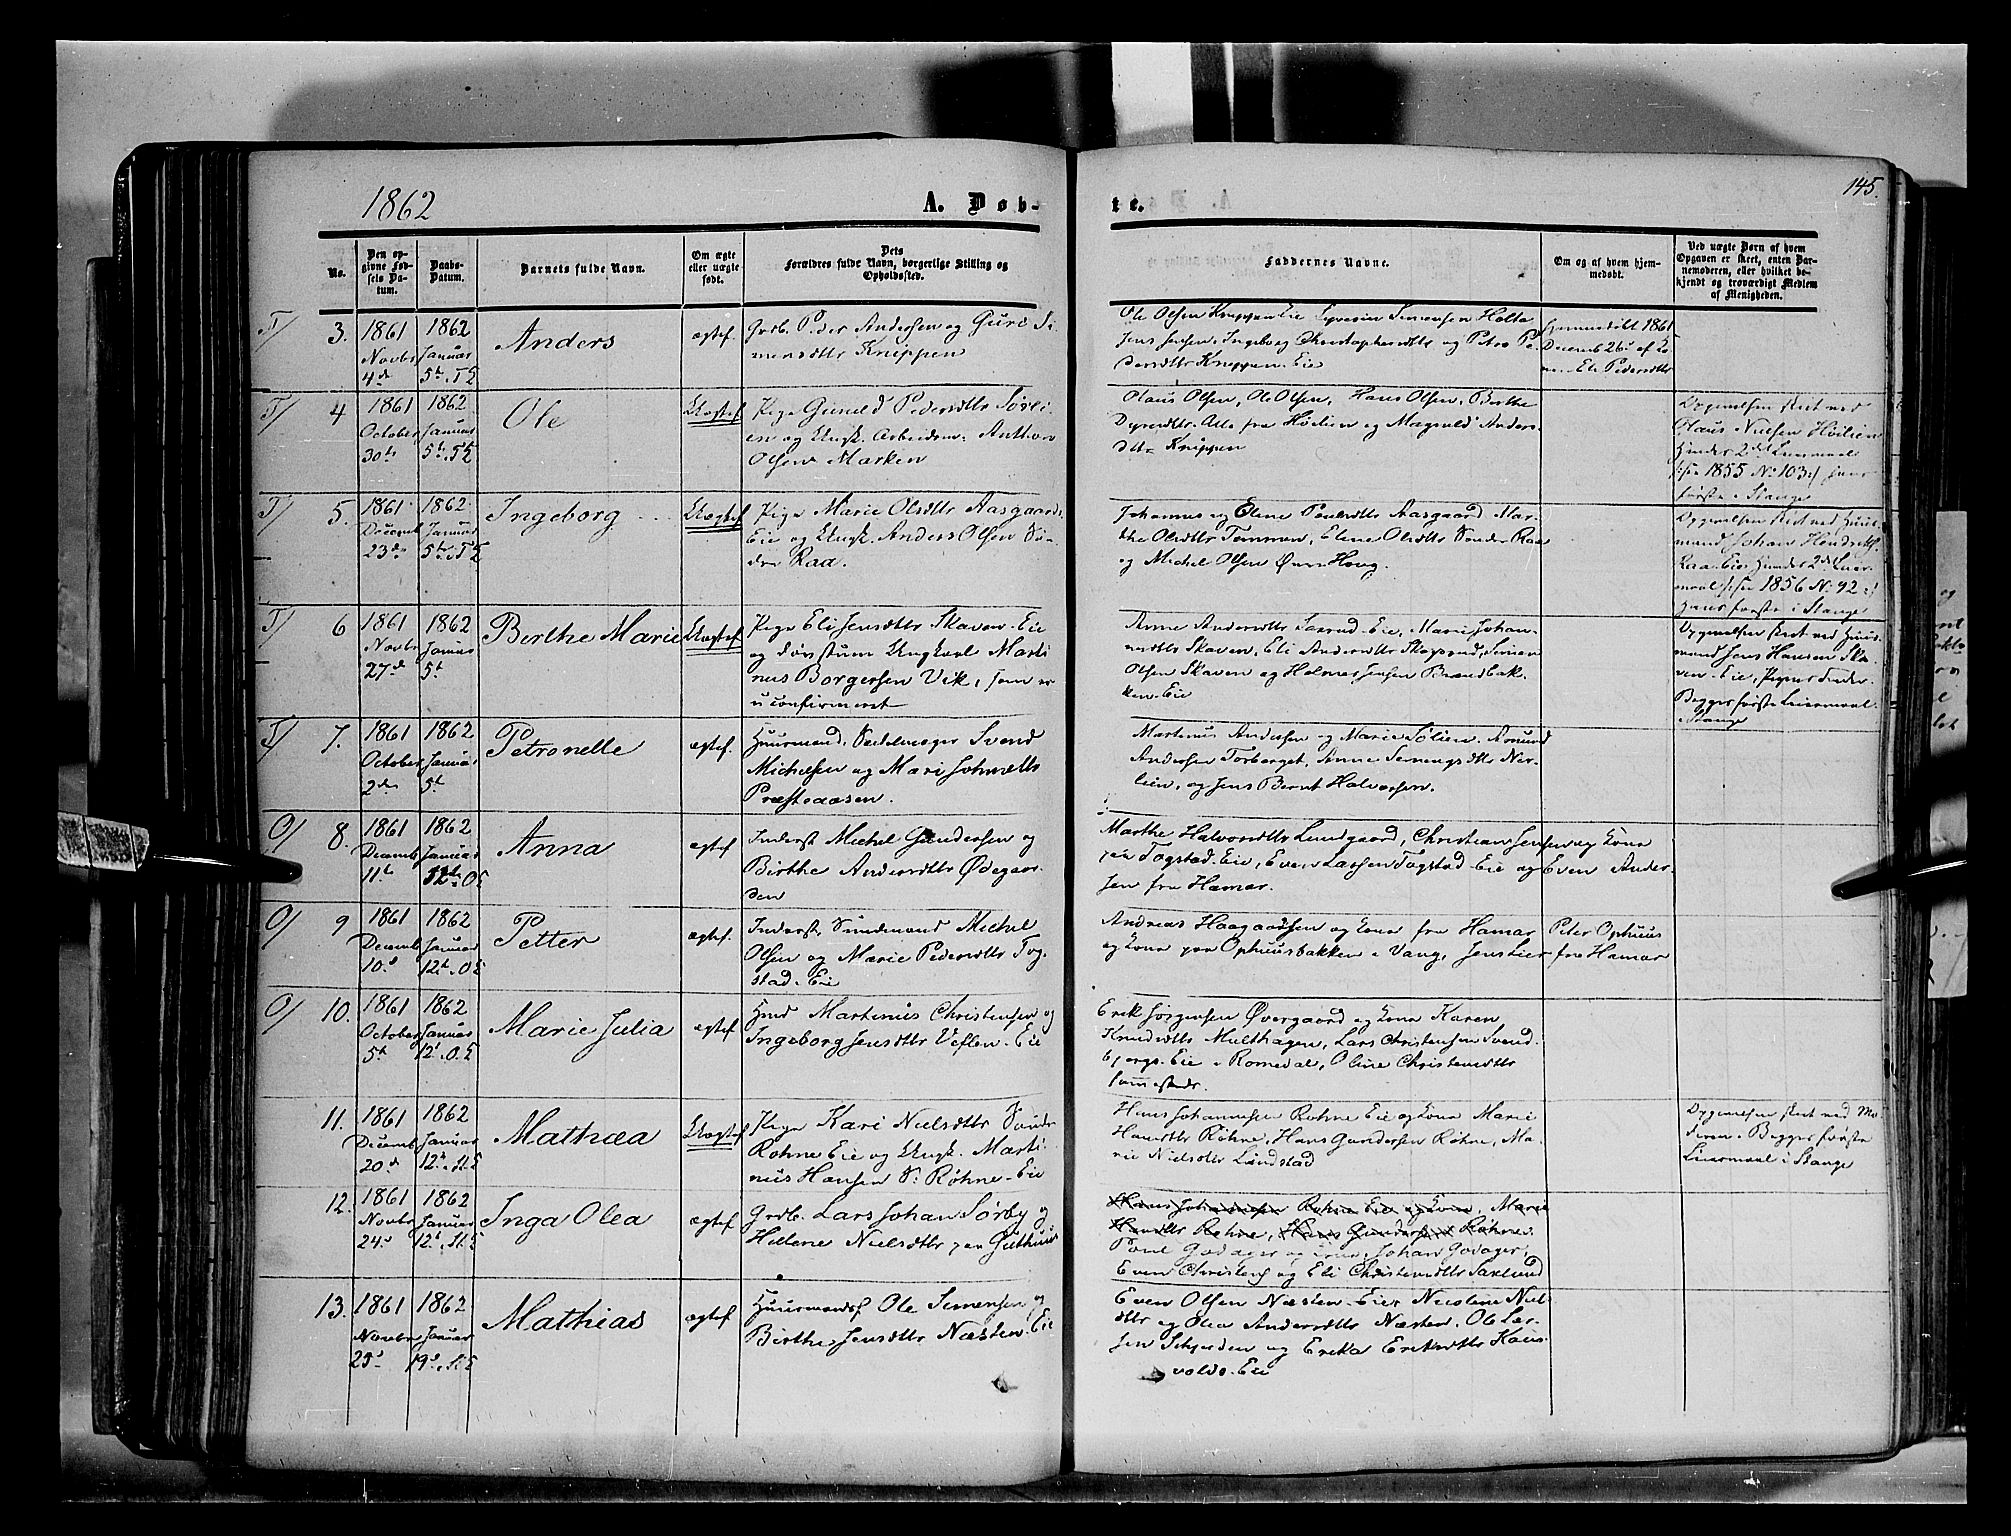 1862
A. Døb-
te.
145.
No.
Den op-
givne Fød-
sels Da-
tum.
Daabs-
Datum.
Barnets fulde Navn.
Om ægte
eller uægte
født.
Dets
Forældres fulde Navn, borgerlige Stilling og
Opholdssted.
Faddernes Navne.
Om og af hvem hjem-
medøbt.
Ved uægte Børn af hvem
Opgaven er skeet, enten Bar-
nemoderen, eller hvilket be-
kjendt og troværdigt Medlem
af Menigheden.
T/ 3. 1861 Novbr 4de
1862 Januar 5te T.K
Anders
ægtef.
Grdb. Peder Andersen og Guri Si-
mensdttr Knippen
Ole Olsen Knippen Eie Syversen Simensen Holte
Jens Jensen, Ingeborg Christophersdttr og Petra Pe-
dersdttr Knippen Eie
Hjemmedøbt 1861
Decemb 26d af Ko-
ne Eli Pedersdttr
T/ 4 1861 October 30te
1862 Januar 5te T.K
Ole
Uægtef
Pige Gunild Pedersdttr Sørli-
en og Ungk. Arbeidsm: Anthon
Olsen Marken
Olaus Olsen, Ole Olsen, Hans Olsen, Berthe
Dyresdttr. Alle fra Høilien og Magnild Anders-
dtr Knippen
Opgivelsen skeet ved
Olaus Nielsen Høilien
Hendes 2det Leiermaal
1855 No 103 hans
første i Stange
T/ 5. 1861 Decemb 23de
1862 Januar 5te T.K
Ingeborg
Uægtef
Pige Marie Olsdttr Aasgaards
Eie og Ungk. Anders Olsen Søn-
dre Raa.
Johannes og Elene Poulsdttr Aasgaard Mar-
the Olsdttr Temmen, Elene Olsdttr Sønder Raa
og Michel Olsen Øvre Houg.
Opgivelsen skeet ved Huus-
mand Johan Hendriks.
Raa Eie, Hendes 2det Leier-
maal 1856 No 92
hans første i Stange
T/ 6 1861 Novbr 27de
1862 Januar 5t
Berthe Marie
Uægtef
Pige Eli Jensdttr Skaven Eie
og Døvstum Ungkarl Marti
nus Borgersen Vik, som er
uconfirmeret
Anne Andersdttr Eie, Marie Johan-
nesdttr Skaven, Eli Andersdttr Simen
Olsen Skaven og Helmer Jensen Brændbak-
ken Eie
Opgivelsen skeet ved Huus-
mand Jens Hansen Ska-
ven Eie, Pigens Fader
Begges første Leiermaal
Stange
T/ 7. 1861 October 2den
1862 Januar 5t
Petronelle
ægtef.
Huusmand, Sadelmager Svend
Michelsen og Mari Johnsdttr
Præsteaasen.
Martinus Andersen og Marie Sølien. Amund
Andersen Torberget, Anne Simensdttr Nor-
lien, og Jens Bernt Halvorsen.
O/ 8. 1861 Decemb 11te
1862 Januar 12te O.K
Anna
ægtef.
Inderst Michel Gundersen og
Birthe Andersdttr Ødegaar-
den
Marthe Halvorsdttr Lundgaard, Christian Jensen og Kone
paa Togstad Eie, Even Larsen Togstad Eie og Even Ander-
sen fra Hamar.
O/ 9 1861 Decemb 10d
1862 Januar 12te O.K
Petter
ægtef.
Inderst, Michel
Olsen og Marie Pedersdttr Tog-
stad Eie
Andreas Haagaardsen og Kone fra Hamar Peter Ophuus
og Kone paa Ophuusbakken i Vang, Jens Lier fra Hamar
O/ 10. 1861 October 5te
1862 Januar 12t O.K
Marie Julia
ægtef.
Huusmd Martinus Christensen og
Ingeborg Jensdttr Veflen Eie
Erik Jørgensen Øvergaard og Kone Karen
Knudsdttr Multhagen, Lars Christensen Svend-
bjergs Eie i Romedal, Oline Christensdttr
sammesteds.
11. 1861 Decemb 20de
1862 Januar 12te St.K
Mathæa
Uægtef
Pige Kari Nielsdttr Søndr
Røhne Eie og Ungk. Marti-
nus Hansen S: Røhne Eie
Hans Johannesen Røhne Eie og Kone Marie
Hansdttr Røhne, Hans Gundersen Røhne, Ma-
rie Nielsdttr Lundstad
Opgivelsen skeet ved Mo-
deren. Begges første
Leiermaal i Stange
12. 1861 Novbr 24d
1862 Januar 12t St.K
Inga Olea
ægtef.
Grdb. Lars Johan Sørby og
Helene Nielsdttr paa Guthuus
Hans Johannesen Røhne Eie og Kone, Marie
Hansdttr Røhne, Hans Gundersen Røhne.
Poul Godager og Kone, Johan Godager,
Even Christens og Eli Christensdttr Saxlund
13. 1861 Novbr 25d
1862 Januar 19d St.K
Mathias
ægtef
Huusmands Ole Simensen og
Birthe Jensdttr Næsten Eie
Even Olsen Næsten Eie, Nicoline Niel-
dttr og Olea Andersdttr Næsten, Ole Lar-
sen Schjerden og Erika Eriksdttr Kaus-
volds Eie